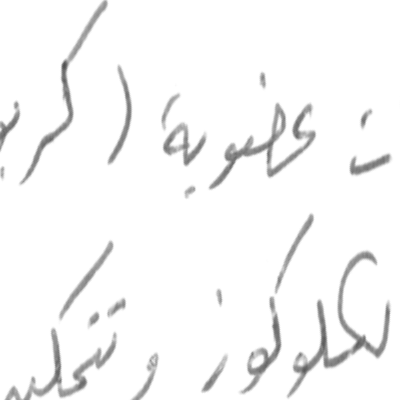 ت عضوية ( كر
لكلوكوز وتتحلل